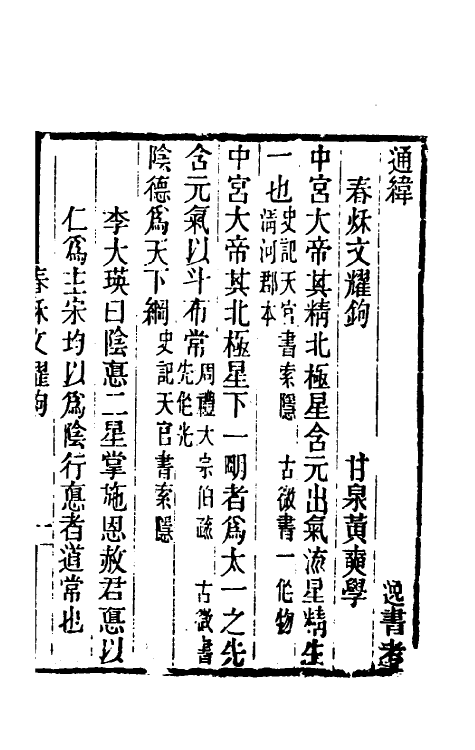 通緯　逸書考
春秌文耀鉤　甘泉黃奭學
中宮大帝其精北極星含元出氣流星精生
一也史記天官書索隱　古微書一作物
清河郡本
中宮大帝其北極星下一明者爲太一之先
含元氣以斗布常周禮大宗伯疏　古微書
先作光
陰德爲天下綱史記天官書索隱
李大瑛曰陰悳二星掌施恩赦君悳以
仁爲主宋均以爲陰行悳者道常也
春秌文耀鉤　一